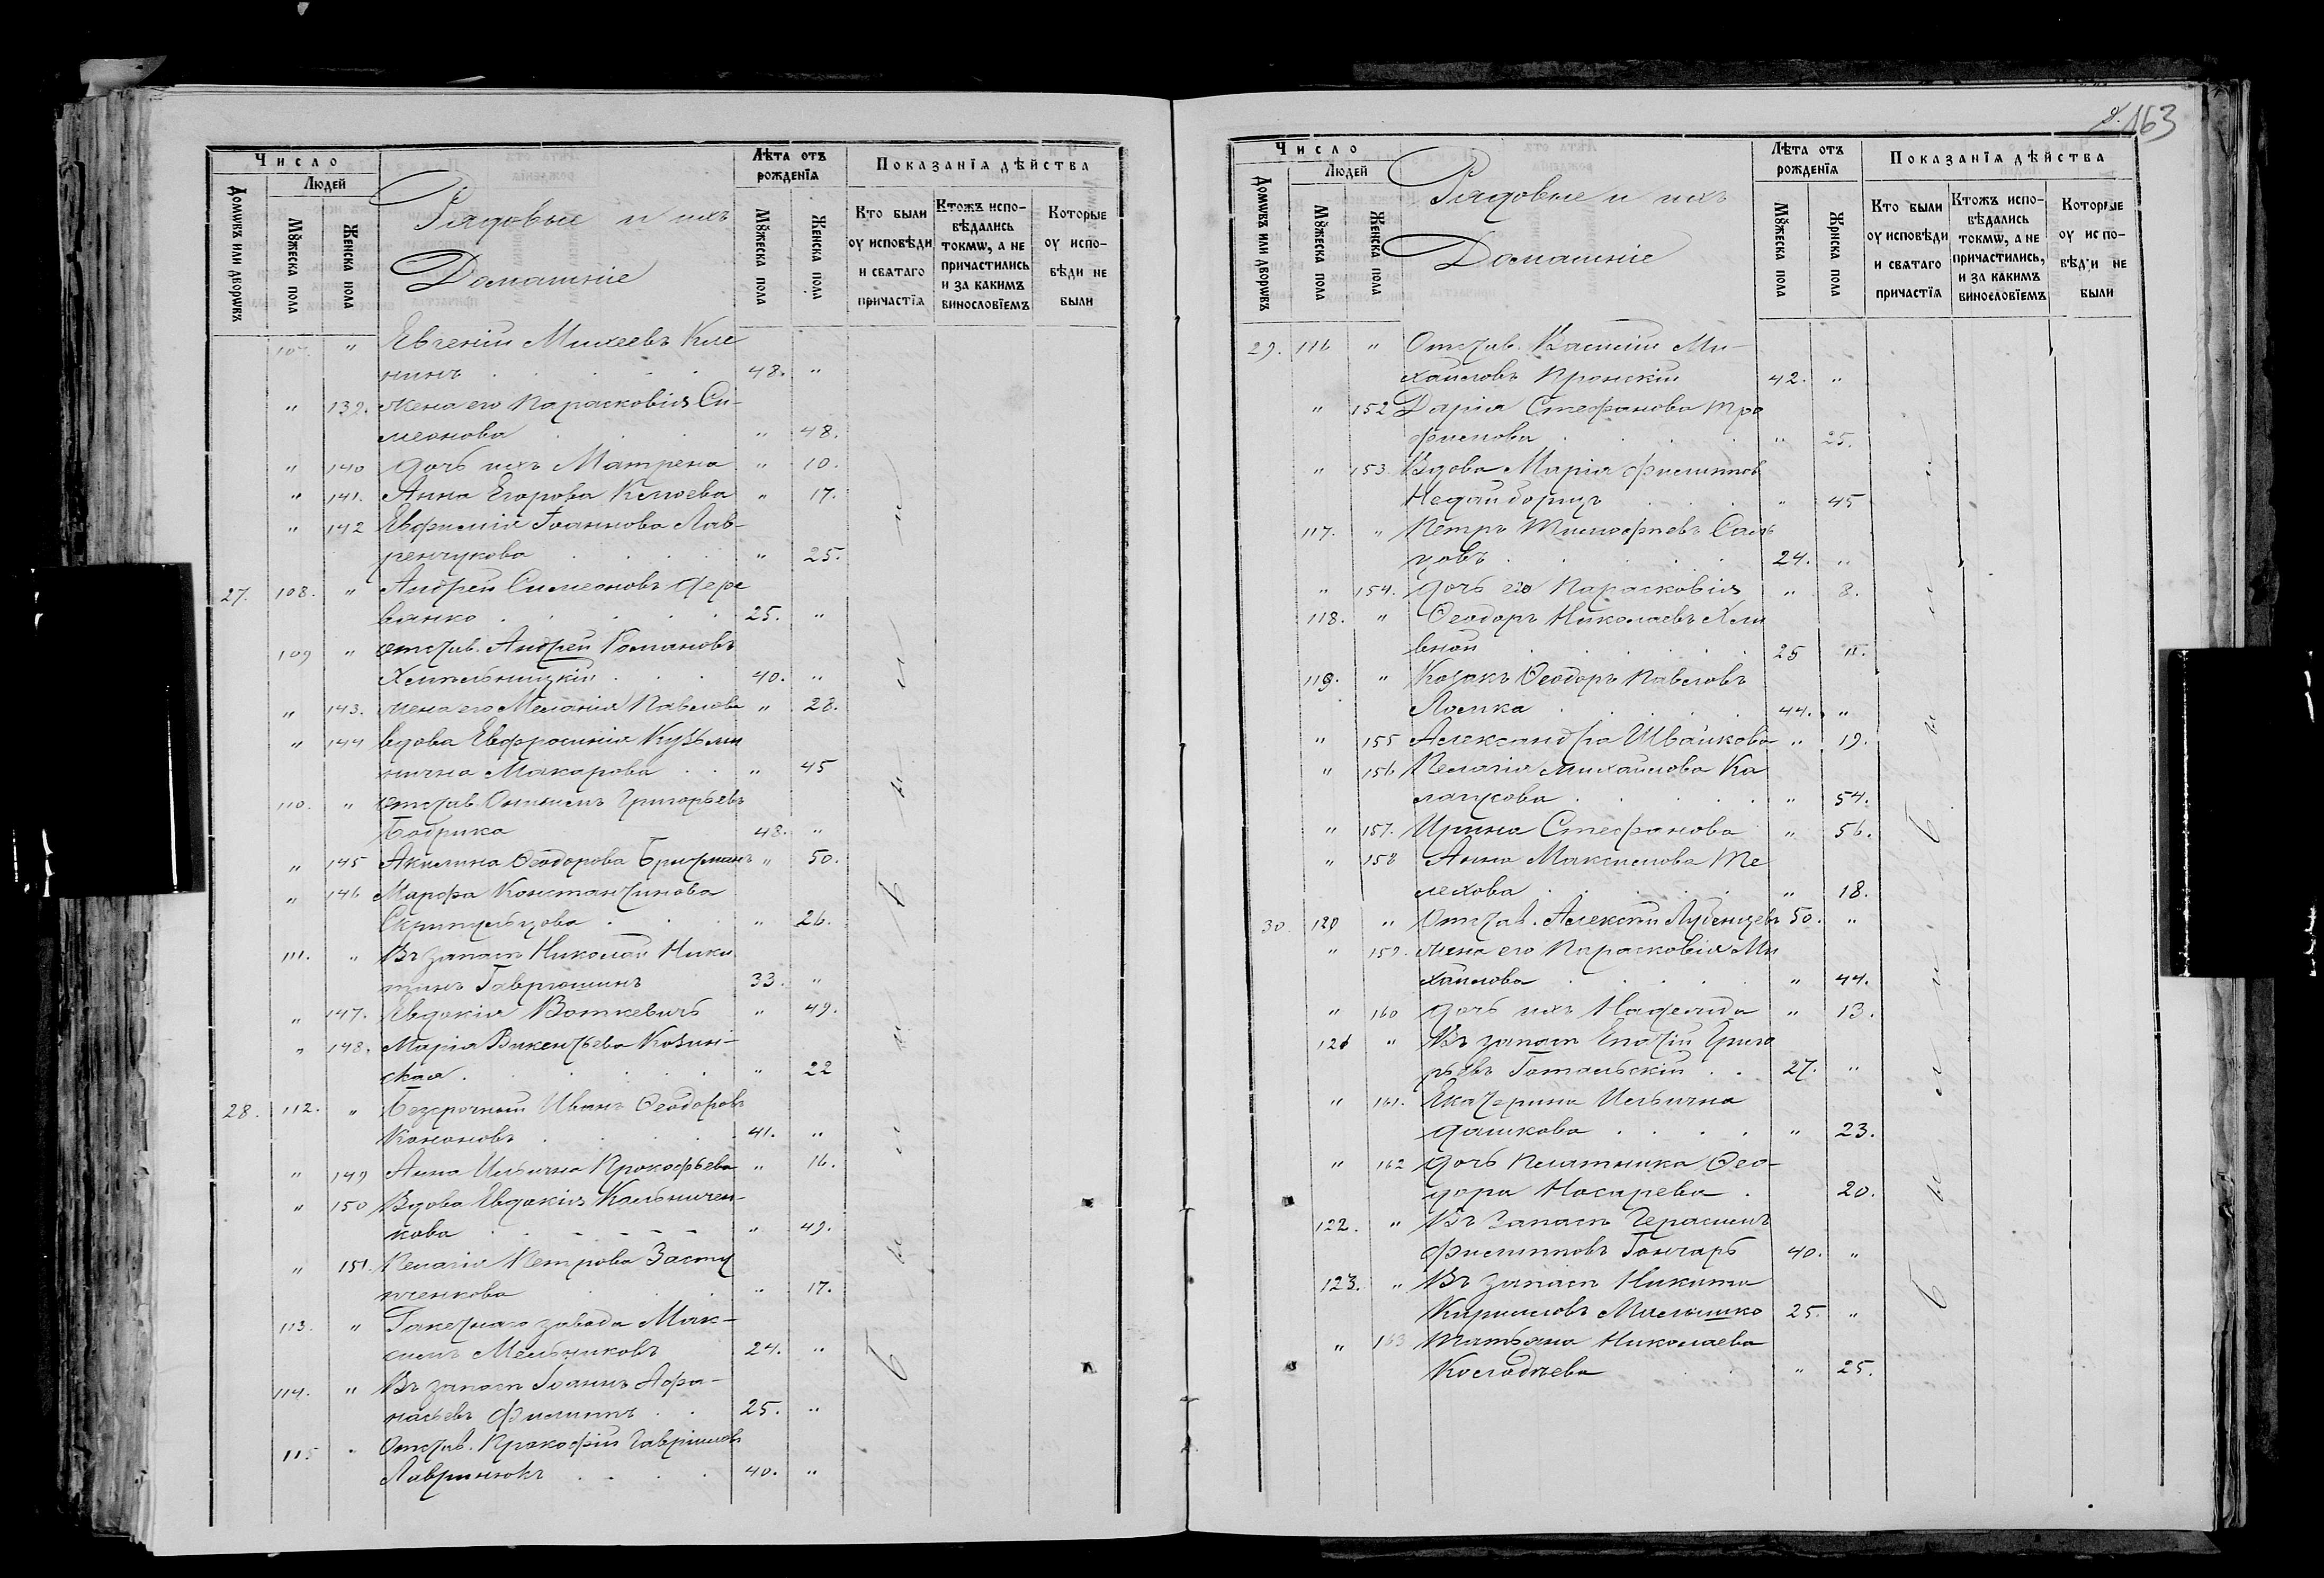 Число
Людей
Домѡвъ или дворѡвъ
Мꙋжеска пола
Женска пола
Рядовые и ихъ
Домашніе
Лѣта отъ
рождєнїѧ
Мꙋжеска пола
Женска пола
Показанїѧ дѣйства
Кто были
оу исповѣди
и свѧтаго
причастїѧ
Ктожъ испо-
вѣдались
токмѡ, а не
причастились
и за какимъ
винословїемъ
Которые
оу испо-
вѣди не
были
107. " Евгеній Михеевъ Кле
нинъ 48. "
" 139. жена его Парасковія Си-
меонова " 48.
" 140 дочь ихъ Матрена " 10.
" 141. Анна Егорова " 17.
" 142 Евфимія Іоаннова Лав-
ренчукова " 25.
27. 108. " Андрей Симеоновъ Дере
вянко 25. "
109 " отстав. Андрей Романовъ
Хмельницкій 40. "
" 143. жена его Меланія Павлова " 28.
" 144 вдова Евфросинія Кузьми
нична Макарова " 45
110. " отстав. Онисимъ Григорьевъ
Бобрика 48. "
" 145 Акилина Ѳеодорова " 50.
" 146 Марфа Константинова
" 26.
111. " Въ запасѣ Николай Ники
тинъ Гаврюшинъ 33. "
" 147. Евдокія Воткевичъ " 49.
" 148. Марія Викентьева Козин-
ская " 22
28. 112. " Безсрочный Иванъ Ѳеодоровъ
Кононовъ 41. "
" 149 Анна Ильична Прокофьева " 16.
" 150 Вдова Евдокія Кальничен-
кова " 49.
" 151. Пелагія Петрова Засту
пченкова " 17.
113. " Ракетнаго завода Мак-
симъ Мельниковъ 24. "
114. " Въ запасѣ Іоаннъ Афа-
насьевъ Филиппъ 25. "
115 " Отстав. Прокофій Гавріиловъ
Лавринюкъ 40. "
были
163
Число
Людей
Домѡвъ или дворѡвъ
Мꙋжеска пола
Женска пола
Рядовые и ихъ
Домашніе
Лѣта отъ
рождєнїѧ
Мꙋжеска пола
Женска пола
Показанїѧ дѣйства
Кто были
оу исповѣди
и свѧтаго
причастїѧ
Ктожъ испо-
вѣдались
токмѡ, а не
причастились,
и за какимъ
винословїемъ
Которые
оу испо-
вѣди не
были
29. 116 " Отстав. Василій Ми-
хайловъ Пронскій 42. "
" 152 Дарія Стефанова Тро
фимова " 25.
" 153. Вдова Марія Филиппов
" 45
117. " Петръ Тимофеевъ
цовъ 24. "
" 154. дочь его Парасковія " 8.
118. " Ѳеодоръ Николаевъ Хли
вной 25 "
119. " Козакъ Ѳеодоръ Павловъ
Ломка 44. "
" 155 Александра Швайкова " 19.
" 156 Пелагія Михайлова Ка
" 54.
" 157. Ирина Стефанова " 56.
" 158 Анна Максимова Те
лехова " 18.
30. 120 " Отстав. Алексѣй Лубенцевъ 50. "
" 159. жена его Парасковія Ми
хайлова " 44.
" 160 дочь ихъ Надежда " 13.
121 " Въ запасѣ Григо
рьевъ Готальскій 27. "
" 161. Екатерина Ильична
Дашкова " 23.
" 162 дочь Ѳео-
дора Носарева 20.
122. " Въ запасѣ Герасимъ
Филипповъ Гончаръ 40. "
123. " Въ запасѣ Никита
Кирилловъ 25. "
" 163 Татьяна Николаева
Колодѣева " 25.
были
были